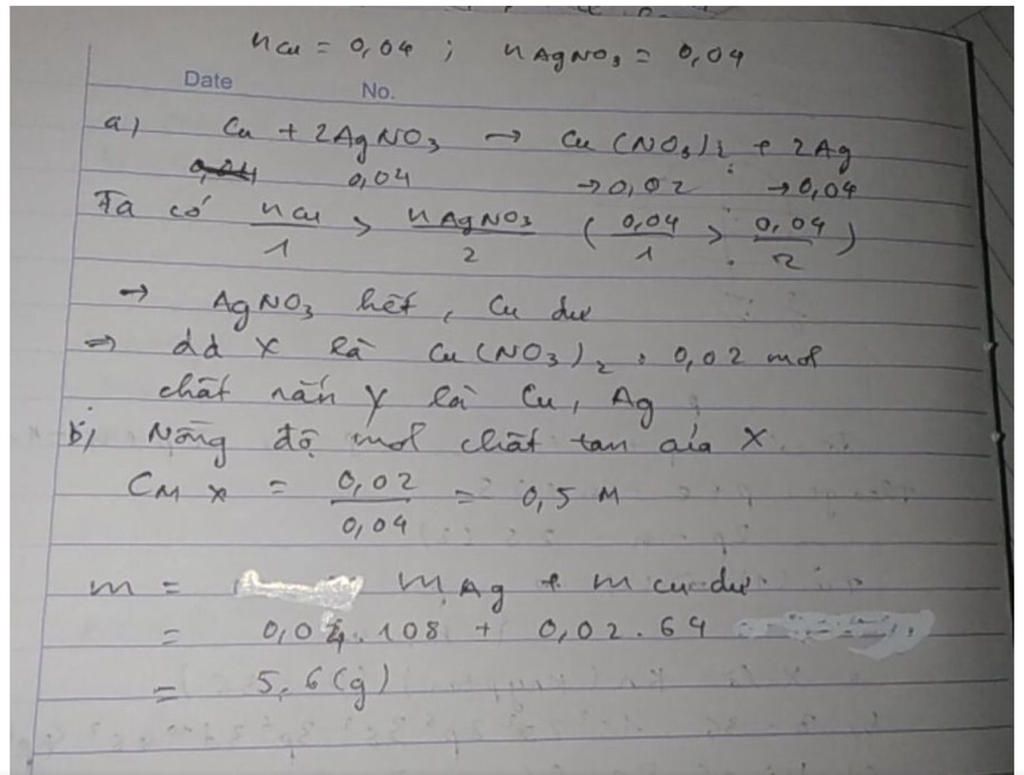 nCu = 0,04 ; nAgNO₃ = 0,04
Date No.
a) Cu + 2AgNO₃ → Cu(NO₃)₂ + 2Ag
0,04 0,04 →0,02 →0,04
Ta có nCu/1 > nAgNO₃/2 (0,04/1 > 0,04/2)
→ AgNO₃ hết, Cu dư
⇒ dd X là Cu(NO₃)₂ : 0,02 mol
chất rắn Y là Cu, Ag
b) Nồng độ mol chất tan của X
CM X = 0,02/0,04 = 0,5 M
m = mAg + mCu dư
= 0,04.108 + 0,02.64
= 5,6(g)